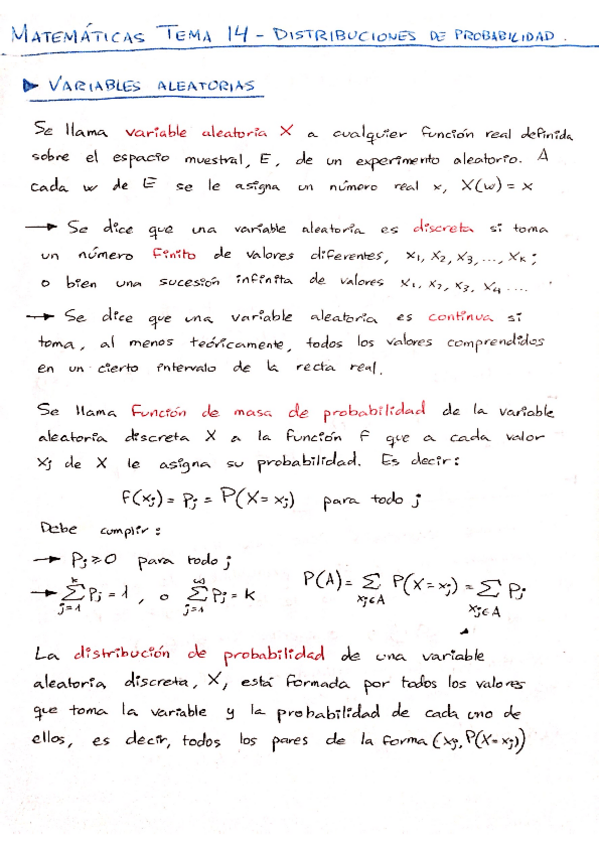 MATEMÁTICAS TEMA 14 - DISTRIBUCIONES DE PROBABILIDAD.
► VARIABLES ALEATORIAS
Se llama variable aleatoria X a cualquier función real definida
sobre el espacio muestral, E, de un experimento aleatorio. A
cada w de E se le asigna un número real x, X(w) = x
→ Se dice que una variable aleatoria es discreta si toma
un número finito de valores diferentes, x₁, x₂, x₃, ..., xₖ;
o bien una sucesión infinita de valores x₁, x₂, x₃, x₄ ....
→ Se dice que una variable aleatoria es continua si
toma, al menos teóricamente, todos los valores comprendidos
en un cierto intervalo de la recta real.
Se llama Función de masa de probabilidad de la variable
aleatoria discreta X a la función f que a cada valor
xⱼ de X le asigna su probabilidad. Es decir:
f(xⱼ) = Pⱼ = P(X = xⱼ) para todo j
Debe cumplir:
→ Pⱼ ≥ 0 para todo j
→ ∑ⱼ₌₁ᵏ Pⱼ = 1, o ∑ⱼ₌₁^∞ Pⱼ = k P(A) = ∑_{xⱼ∈A} P(X = xⱼ) = ∑_{xⱼ∈A} Pⱼ
La distribución de probabilidad de una variable
aleatoria discreta, X, está formada por todos los valores
que toma la variable y la probabilidad de cada uno de
ellos, es decir, todos los pares de la forma (xⱼ, P(X = xⱼ))